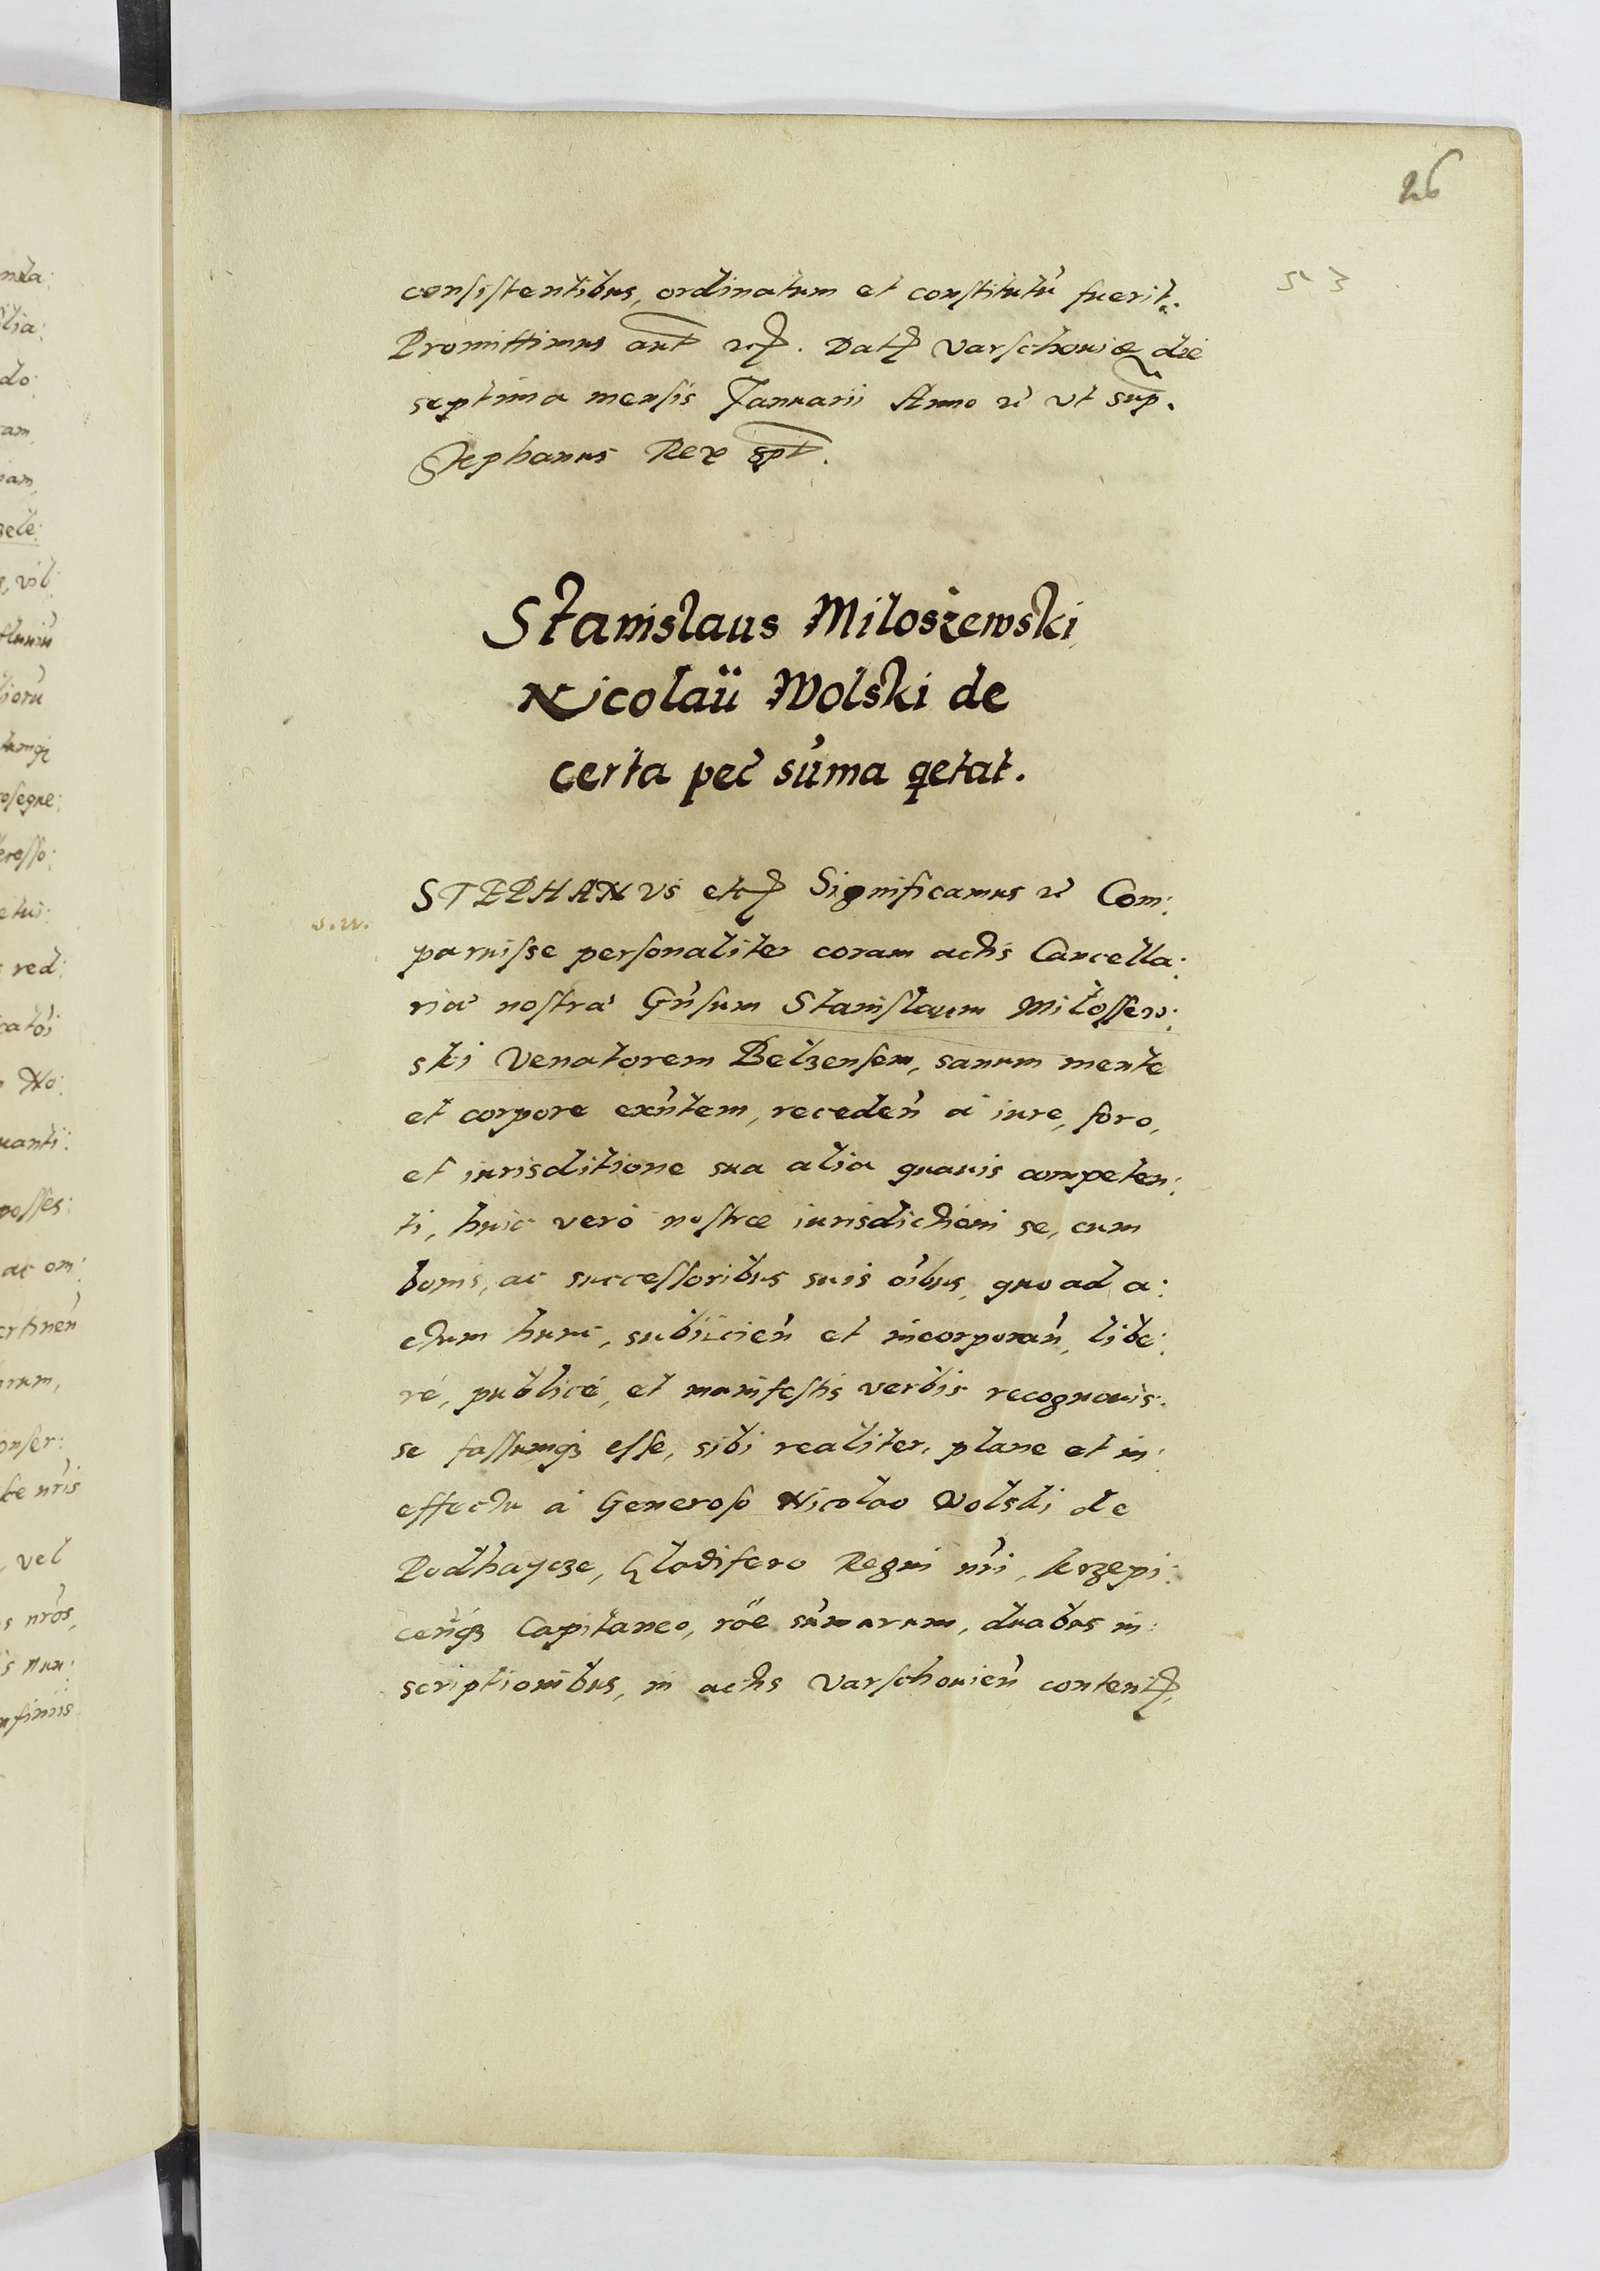 26
consistentibus, ordinatum et constitutū fuerit.
Promittimus aut etc. Dat Varschoviæ die
septima mensis Januarii Anno etc ut sup.
Stephanus Rex spt.
Stanislaus Miloszewski
Nicolaü Wolski de
certa pec̄ sūma qetat.
STEPHANVS etc Significamus etc Com:
s.w.
paruisse personaliter coram actis Cancella:
riæ nostræ Gn̄sum Stanislaum Miłossew:
ski Venatorem Belzensem, sanum mente
et corpore exn̄tem, receden̄ à iure, foro,
et iurisditione sua alia quauis competen:
ti, huic verò nostræ iurisdictioni se, cum
bonis, ac successoribus suis oībus, quo ad a:
ctum hunc, subiicien̄ et incorporan̄, libe:
rè, publicè, et manifestis verbis recognouis:
se fassumq; esse, sibi realiter, plane et in:
effectu à Generoso Nicolao Wolski de
Podhaycze, Gladifero Regni nr̄i, krzepi:
cen̄q; Capitaneo, rōe sūmarum, duabus in:
scriptionibus, in actis Varschouien̄ content,